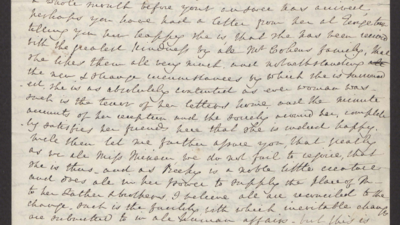 a whole month before your answer has arrived
perhaps you have had a letter from her at
telling you how happy she is that she has been received
with the greatest kindness by all Mr Cohens family, that
she likes them all very much and notwithstanding
the new & strange circumstances by which she is surround
ed, she is as absolutely contented as ever woman was.
such is the tenor of her letters home, and the minute
accounts of her reception and the society around her, complete
ly satisfies her friends here that she is indeed happy.
Well then let me further assure you, that greatly
as we all Miss we do not fail to rejoice, that
she is thus, and as Becky is a noble little creature
and does all in her power to supply the place of
to her Father & brothers I believe all are reconciled to the
change, such is the facility with which inevitable change
are submitted to in all human affairs. but this is